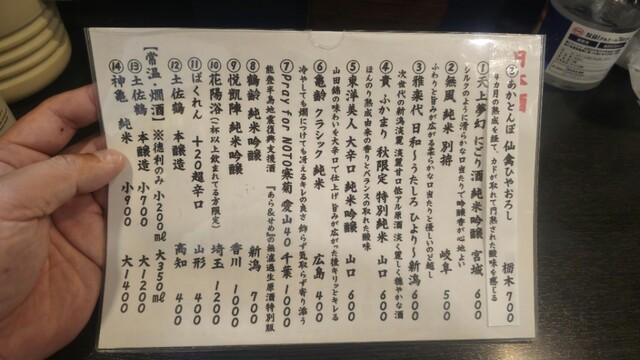 日本酒
②あかとんぼ 仙禽ひやおろし 栃木 700
4カ月の熟成を経て、カドが取れて円熟された酸味を感じる
①天上夢幻 にごり酒 純米吟醸 宮城 600
シルクのように滑らかな口当たりで吟醸香が心地よい
②無風 純米 別誂 岐阜 500
ふわりと旨みが広がる柔らかな口当たりと優しいのど越し
③雅楽代 日和～うたしろ ひより～ 新潟 600
次世代の新潟淡麗 淡麗甘口 低アル原酒 淡く麗しく穏やかな酒
④貴 ふかまり 秋限定 特別純米 山口 600
ほんのり熟成由来の香りとバランスの取れた酸味
⑤東洋美人 大辛口 純米吟醸 山口 600
山田錦の味わいを大辛口で仕上げ 旨みが広がった後キリッとキレる
⑥亀齢 クラシック 純米 広島 400
冷やしても燗につけても冴えるキレの良さ 飾らず気取らず寄り添う
⑦Pray for NOTO 寒菊 愛山40 千葉 1000
能登半島地震復興支援酒 『あら&せめ』の無濾過生原酒特別版
⑧鶴齢 純米吟醸 新潟 700
⑨悦凱陣 純米吟醸 香川 1000
⑩花陽浴(2杯以上飲まれてる方限定) 埼玉 1200
⑪ばくれん +20超辛口 山形 400
⑫土佐鶴 本醸造 高知 400
【常温・燗酒】※徳利のみ 小200㎖ 大350㎖
⑬土佐鶴 本醸造 小700 大1200
⑭神亀 純米 小900 大1400